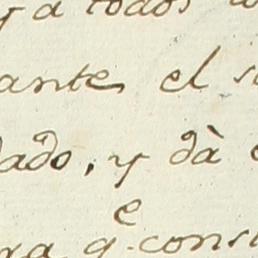 y a todos
ante el
dado, y dà
e
ra q. cons